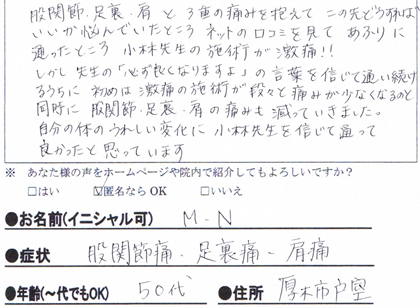 股関節.足裏.肩 と 3重の痛みを抱えて この先どうすれば
いいか悩んでいたところ ネットの口コミを見て あふりに
通ったところ 小林先生の施術が激痛!!
しかし先生の「必ず良くなりますよ」の言葉を信じて通い続け
るうちに 初めは激痛の施術が段々と痛みが少なくなるのと
同時に 股関節.足裏.肩の痛みも減っていきました。
自分の体のうれしい変化に 小林先生を信じて通って
良かったと思っています
※ あなた様の声をホームページや院内で紹介してもよろしいですか?
□はい ☑匿名ならOK □いいえ
●お名前(イニシャル可) M-N
●症状 股関節痛-足裏痛-肩痛
●年齢(~代でもOK) 50代 ●住所 厚木市戸室